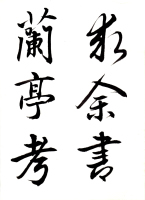 求余書
蘭亭考